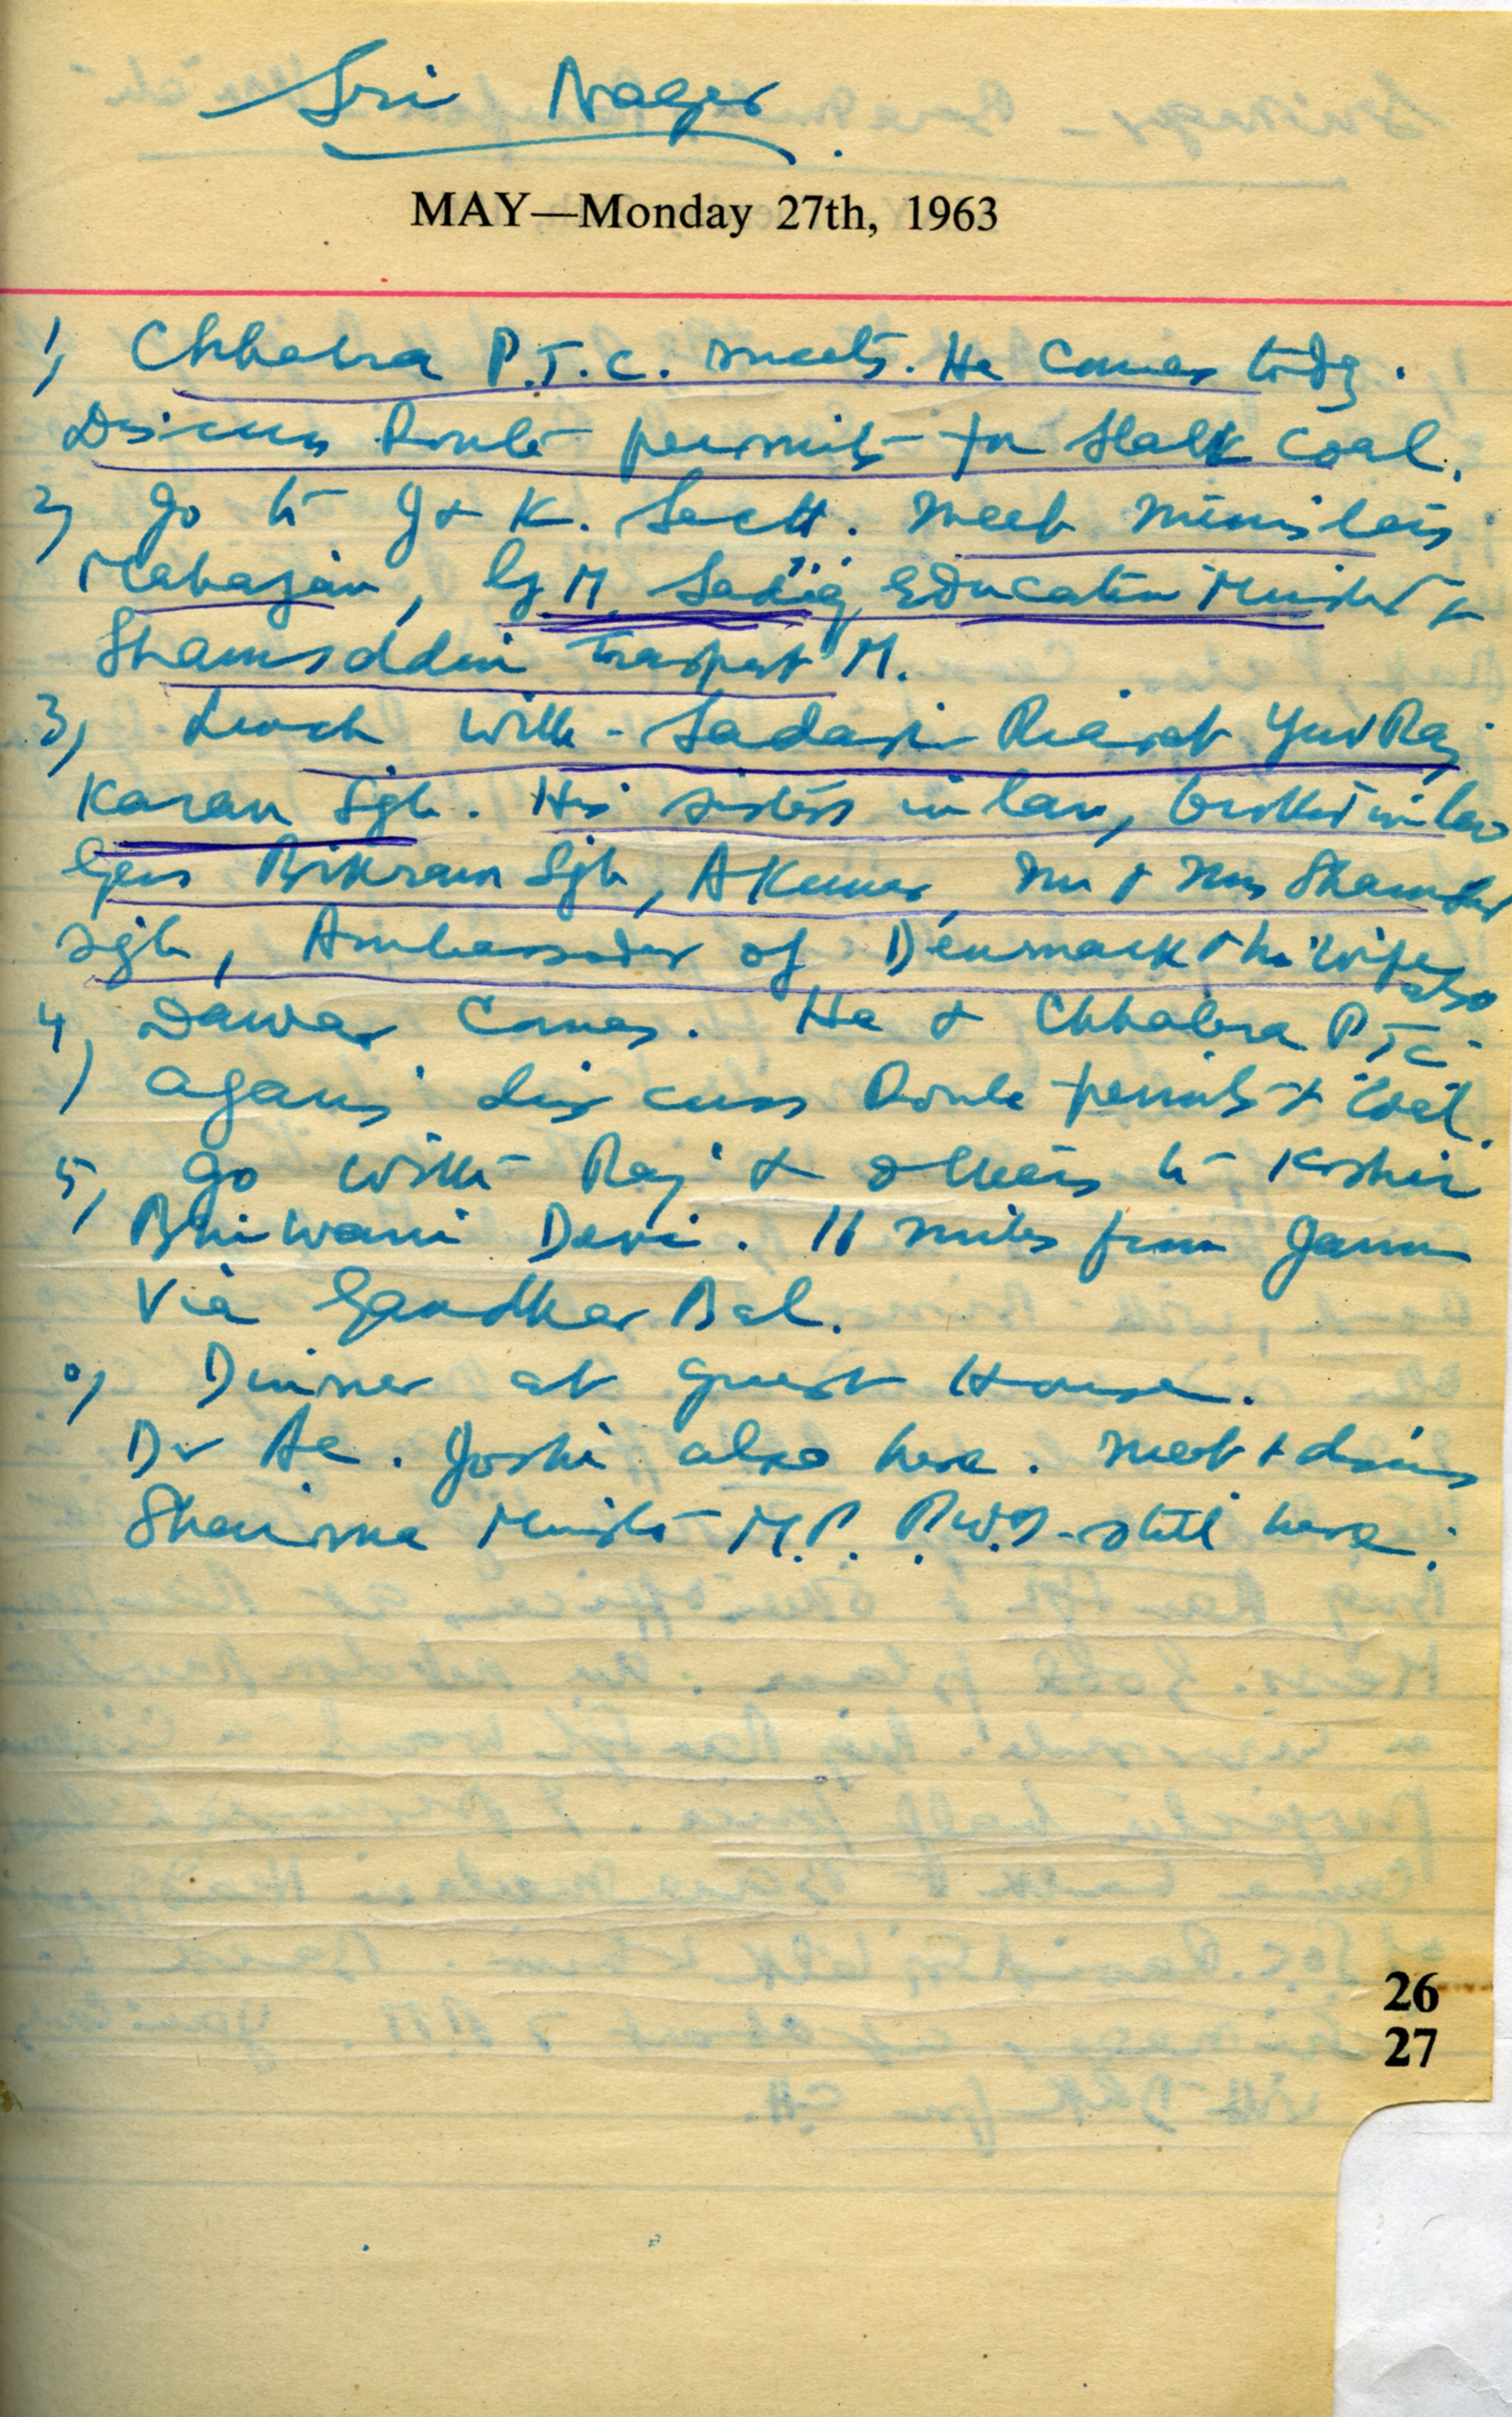 Sri Nager
MAY—Monday 27th, 1963
1) Chhabra P.T.C. meets. He comes today.
Discuss Route permits for Slack Coal.
2) Go to J & K. Sectt. meet ministers
Mahajan, G M. Sadiq Education Minister &
Shamsddin Trasport M.
3) Lunch with - Sadar Riasat YuvRaj
Karan Sgh. His sisters in law, brother in law
Gen Bikram Sgh, A Kumar, Mr & Mrs Shamsher
Sgh, Ambassador of Denmark & his wife also
4) Dawar Comes. He & Chhabra P.T.C.
again discuss Route permits & Coal.
5) Go with Raj & others to Kshir
Bhiwani Devi. 16 miles from Jammu
Via Gandher Bal.
Dinner at Guest House.
Dr Joshi also here. Meet & discuss
Sharma Minister M.P. P.W.D. still here.
26
27